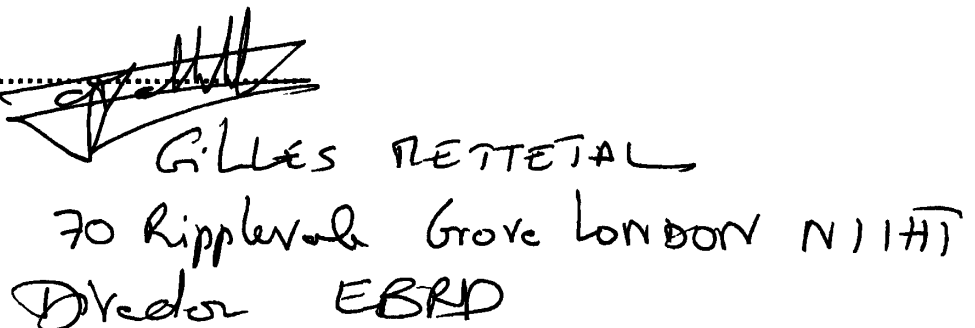 GILLES METTETAL
70 Ripplevale Grove LONDON N1 1HT
Director EBRD